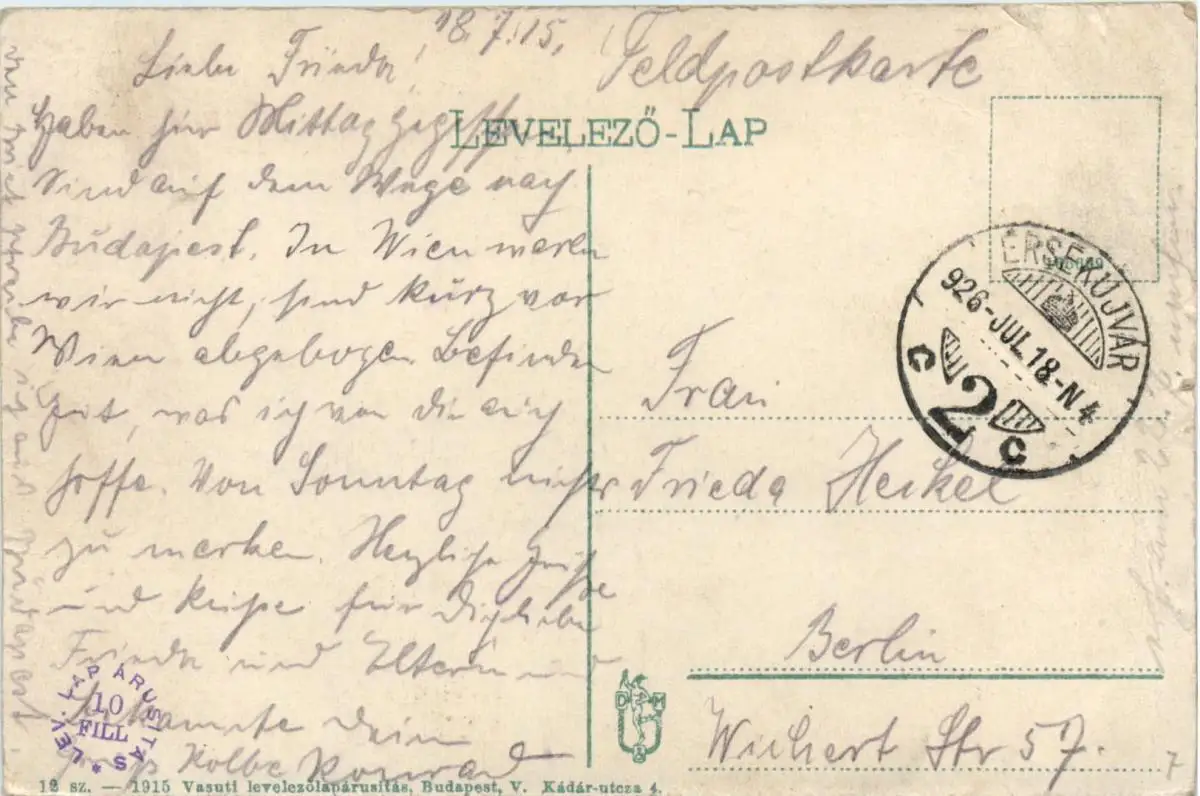 18.7.15.
Feldpostkarte
Liebe Frieda!
LEVELEZŐ-LAP
Haben hier Mittag gegessen
Sind auf dem Wege nach
Budapest. In Wien waren
wir nicht, sind kurz vor
Wien abgebogen. Befinden
gut, was ich von dir auch
hoffe. Von Sonntag nichts
zu merken. Herzliche Grüße
und Küsse für Dich liebe
Frieda und Eltern und
Bekannte dein
Kolbe Konrad
ÉRSEKUJVÁR
926-JUL.18-N4
C 2 C
Frau
Frieda Heikel
Berlin
Wichert Str 57.
7
D M
LEV. LAP ÁRUSITÁS *
10
FILL
12 sz. — 1915 Vasuti levelezőlapárusitás, Budapest, V. Kádár-utcza 4.
schreibe ich aus Budapest.